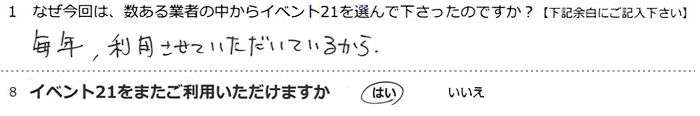 1 なぜ今回は、数ある業者の中からイベント21を選んで下さったのですか？【下記余白にご記入下さい】
毎年，利用させていただいているから.
8 イベント21をまたご利用いただけますか はい いいえ